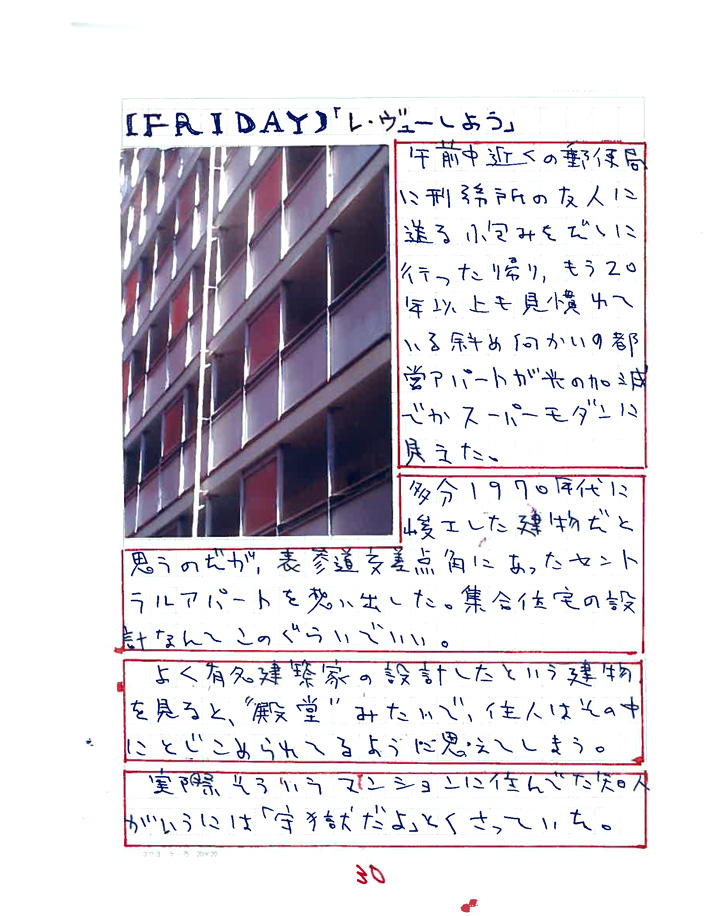 【FRIDAY】「レ・ヴューしよう」
午前中近くの郵便局
に刑務所の友人に
送る小包みをだしに
行った帰り,もう20
年以上も見慣れて
いる斜め向かいの都
営アパートが光の加減
でかスーパーモダンに
見えた。
多分1970年代に
竣工した建物だと
思うのだが,表参道交差点角にあったセント
ラルアパートを想い出した。集合住宅の設
計なんてこのぐらいでいい。
よく有名建築家の設計したという建物
を見ると、"殿堂"みたいで、住人はその中
にとじこめられてるように思えてしまう。
実際そういうマンションに住んでた知人
がいうには「守獄だよ」とくさっていた。
30